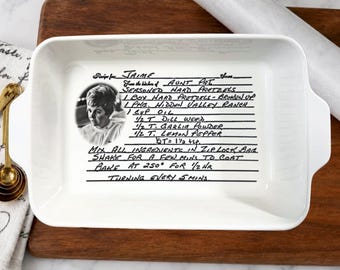 Recipe for: JAIME Serves
From the kitchen of AUNT PAT
SEASONED HARD PRETZELS
1 BOX HARD PRETZELS - BROKEN UP
1 PKG. HIDDEN VALLEY RANCH
1 CUP OIL
1/2 T. DILL WEED
1/2 T. GARLIC POWDER
1/2 T. LEMON PEPPER
MIX ALL INGREDIENTS IN ZIP LOCK BAG
SHAKE FOR A FEW MINS TO COAT
BAKE AT 250° FOR 1/2 HR
TURNING EVERY 5 MINS